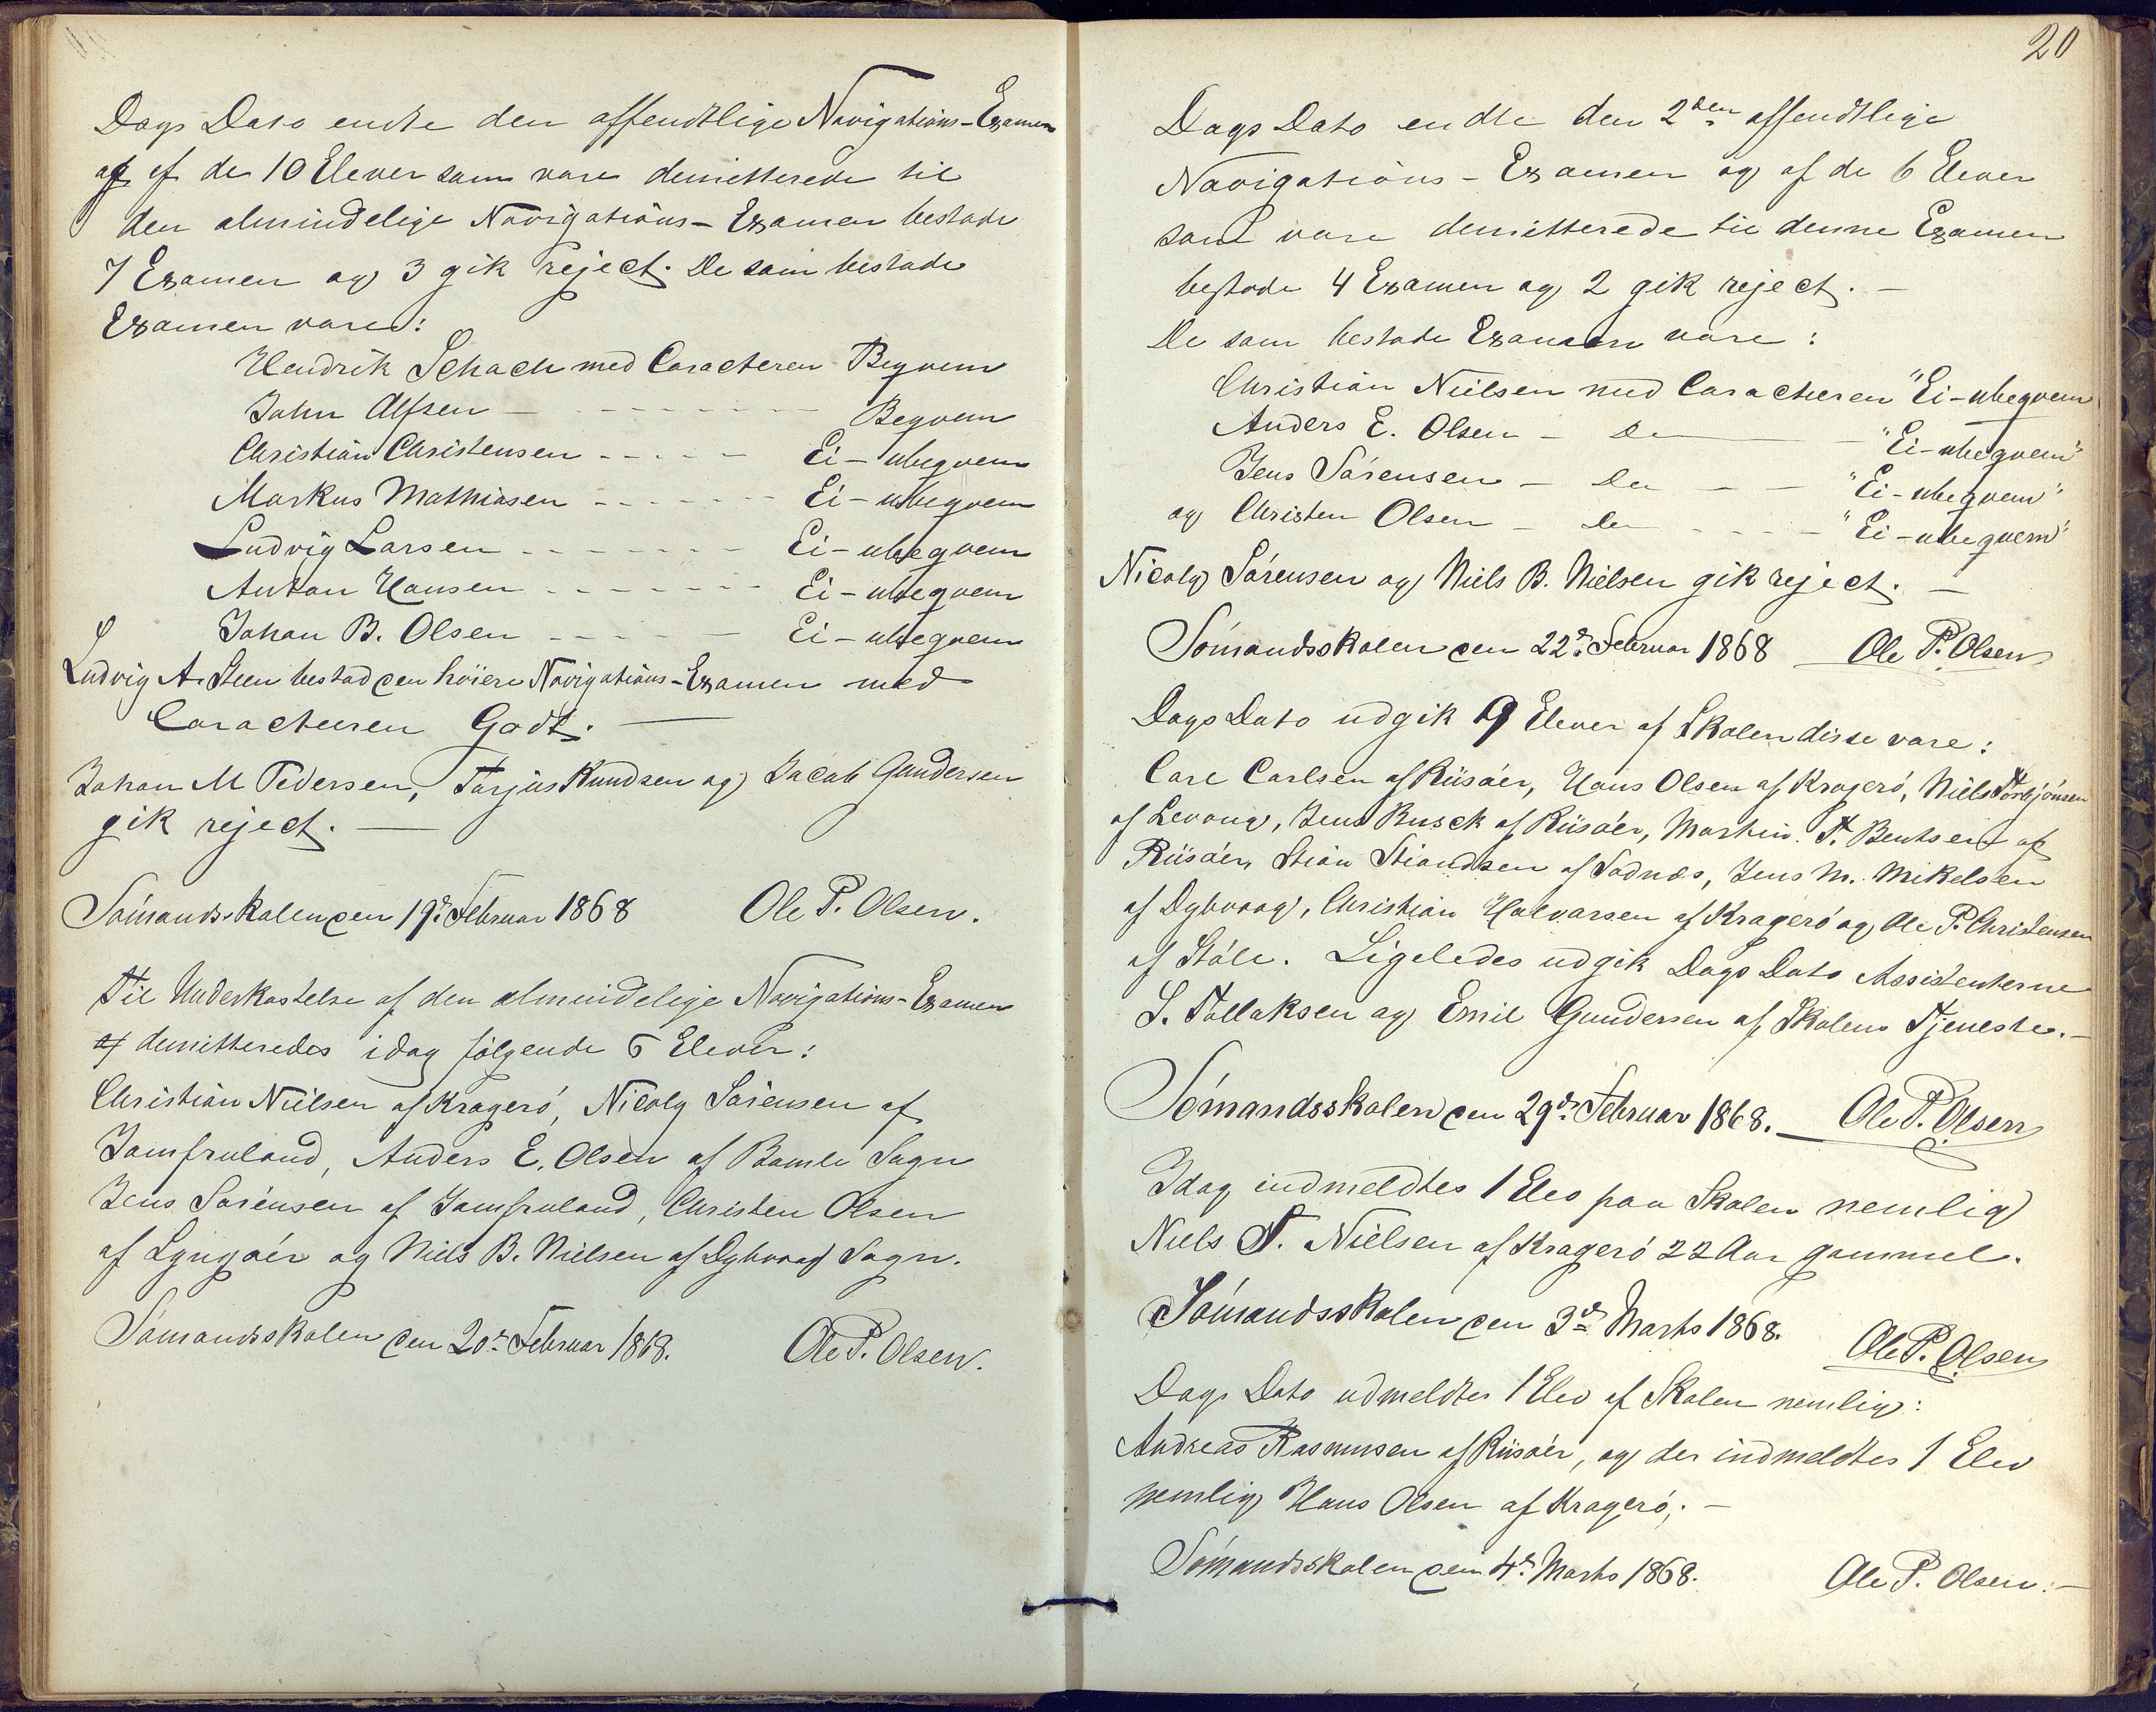 Dags Dato endte den offendtlige Navigations-Examen
og af de 10 Elever som vare demitterede til
den almindelige Navigations-Examen bestode
7 Examen og 3 gik reject. De som bestode
Examen vare:
Hendrik Schach med Caracteren Beqvem
John Alfsen - - - - - - - Beqvem
Christian Christensen - - - - - Ei-ubeqvem
Markus Mathiasen - - - - - - Ei-ubeqvem
Ludvig Larsen - - - - - - - Ei-ubeqvem
Anton Hansen - - - - - - - Ei-ubeqvem
Johan B. Olsen - - - - - Ei-ubeqvem
Ludvig A. Steen bestod den höiere Navigations-Examen med
Caracteeren Godt. —
Johan M Pedersen, Tarjus Knudsen og Jacob Gundersen
gik reject. —
Sömandsskolen den 19de Februar 1868 Ole P. Olsen.
Til Underkastelse af den almindelige Navigations-Examen
af demitteredes idag fölgende 6 Elever:
Christian Nielsen af Krageró, Nicoly Sörensen af
Jomfruland, Anders E. Olsen af Bamle Sogn
Jens Sörensen af Jomfruland, Christen Olsen
af Lyngöer og Niels B. Nielsen af Dybvaag Sogn.
Sömandsskolen den 20de Februar 1868. Ole P. Olsen.
20
Dags Dato endte den 2den offendtlige
Navigations-Examen og af de 6 Elever
som vare demitterede til denne Examen
bestode 4 Examen og 2 gik reject. —
De som bestode Examen vare:
Christian Nielsen med Caracteren "Ei-ubeqvem
Anders E. Olsen - Do — "Ei-ubeqvem"
Jens Sörensen - Do - - "Ei-ubeqvem"
og Christen Olsen - Do - - - - "Ei-ubeqvem"
Nicoly Sörensen og Niels B. Nielsen gik reject. —
Sömandsskolen den 22de Februar 1868 Ole P. Olsen
Dags Dato udgik 9 Elever af Skolen disse vare:
Carl Carlsen af Riisöer, Hans Olsen af Krageró, Niels Torbjönsen
af Levang, Jens Busck af Riisöer, Martin T. Bentsen af
Riisöer, Stian Stiandsen af Sadnæs, Jens M. Mikelsen
af Dybvaag, Christian Halvorsen af Krageró og Ole P. Christensen
af Stöle. Ligeledes udgik Dags Dato Assistenterne
S. Tallaksen og Emil Gundersen af Skolens Tjeneste. —
Sömandsskolen den 29de Februar 1868. — Ole P. Olsen
Idag indmeldtes 1 Elev paa Skolen nemlig
Niels T. Nielsen af Krageró 22 Aar gammel.
Sömandsskolen den 3de Marts 1868. Ole P. Olsen
Dags Dato udmeldtes 1 Elev af Skolen nemlig:
Andreas Rasmusen af Riisöer, og der indmeldtes 1 Elev
nemlig Hans Olsen af Krageró. —
Sömandsskolen den 4de Marts 1868. Ole P. Olsen. —